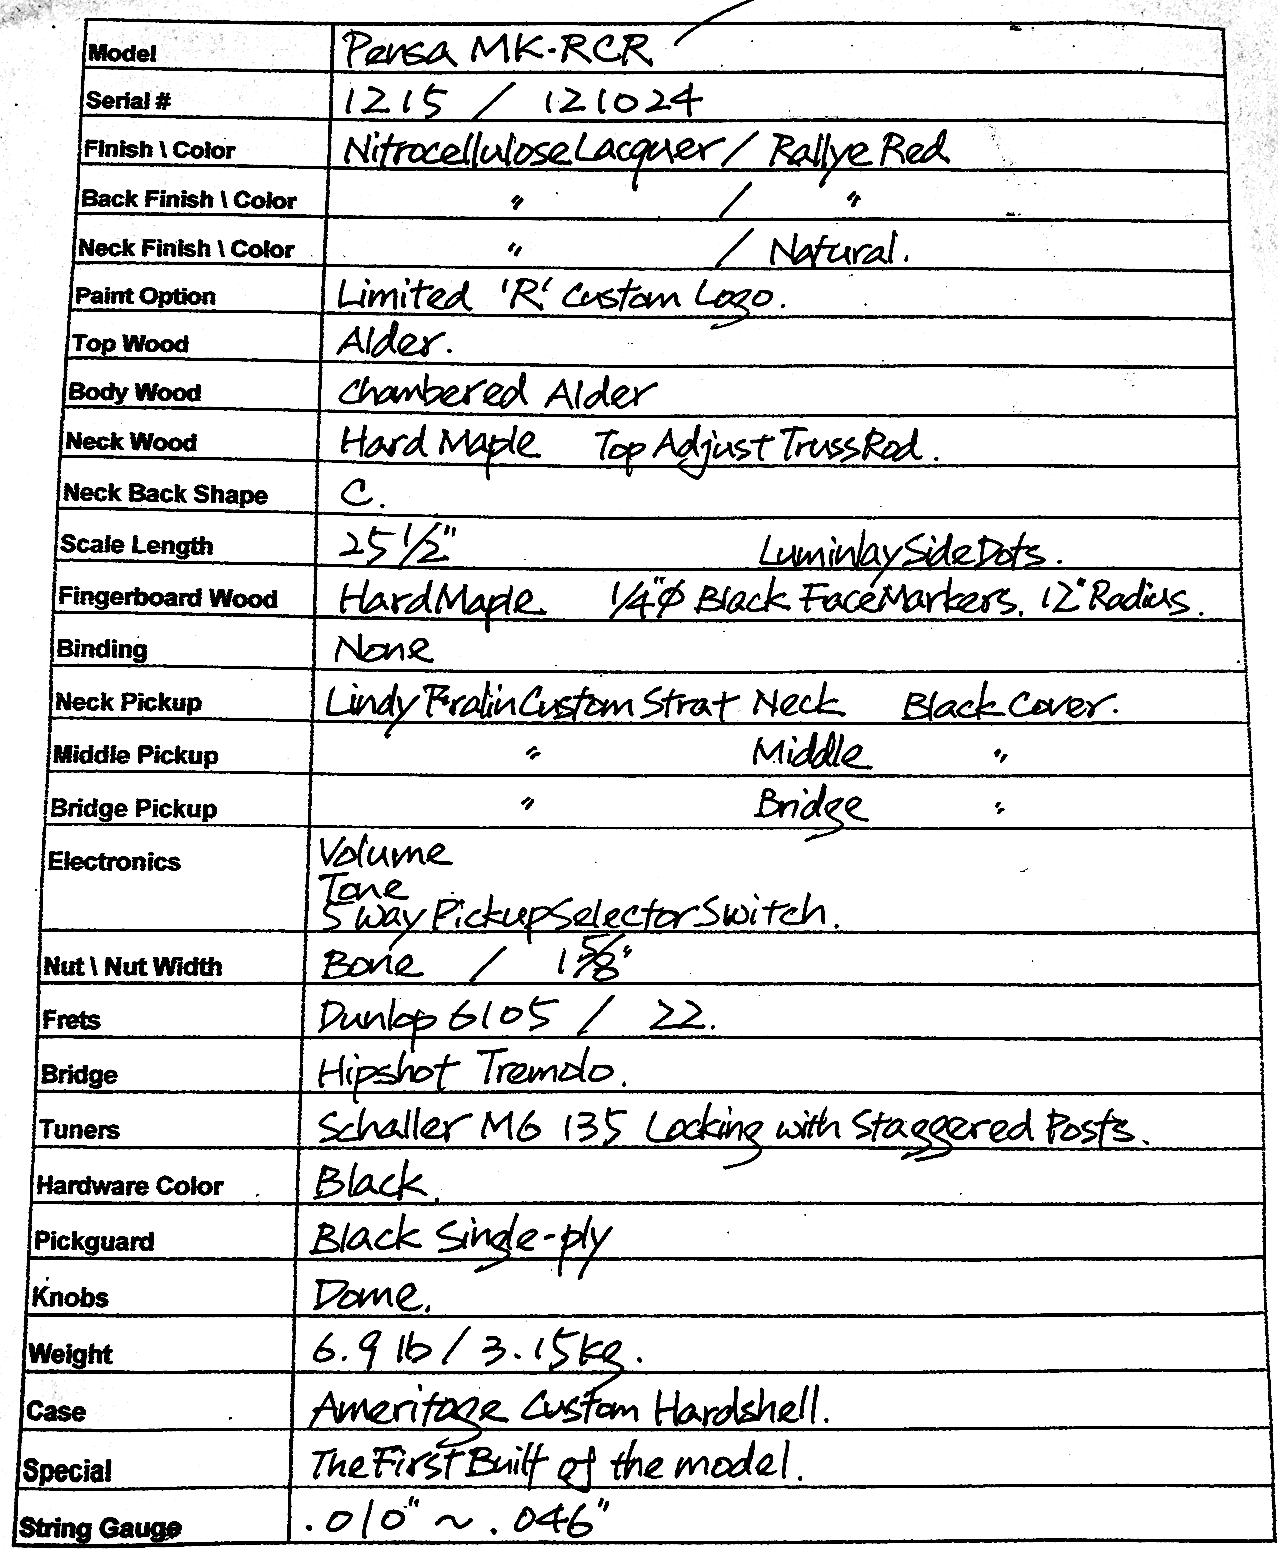 Model Pensa MK-RCR
Serial # 1215 / 121024
Finish \ Color Nitrocellulose Lacquer / Rallye Red
Back Finish \ Color " / "
Neck Finish \ Color " / Natural.
Paint Option Limited 'R' Custom Logo.
Top Wood Alder.
Body Wood Chambered Alder
Neck Wood Hard Maple Top Adjust Truss Rod.
Neck Back Shape C.
Scale Length 25 1/2" Luminlay Side Dots.
Fingerboard Wood Hard Maple 1/4"ø Black Face Markers. 12" Radius.
Binding None
Neck Pickup Lindy Fralin Custom Strat Neck Black Cover.
Middle Pickup " Middle "
Bridge Pickup " Bridge "
Electronics Volume
Tone
5 Way Pickup Selector Switch.
Nut \ Nut Width Bone / 1 5/8"
Frets Dunlop 6105 / 22.
Bridge Hipshot Tremolo.
Tuners Schaller M6 135 Locking with Staggered Posts.
Hardware Color Black.
Pickguard Black Single-ply
Knobs Dome.
Weight 6.9 lb / 3.15kg.
Case Ameritage Custom Hardshell.
Special The First Built of the model.
String Gauge .010" ~ .046"